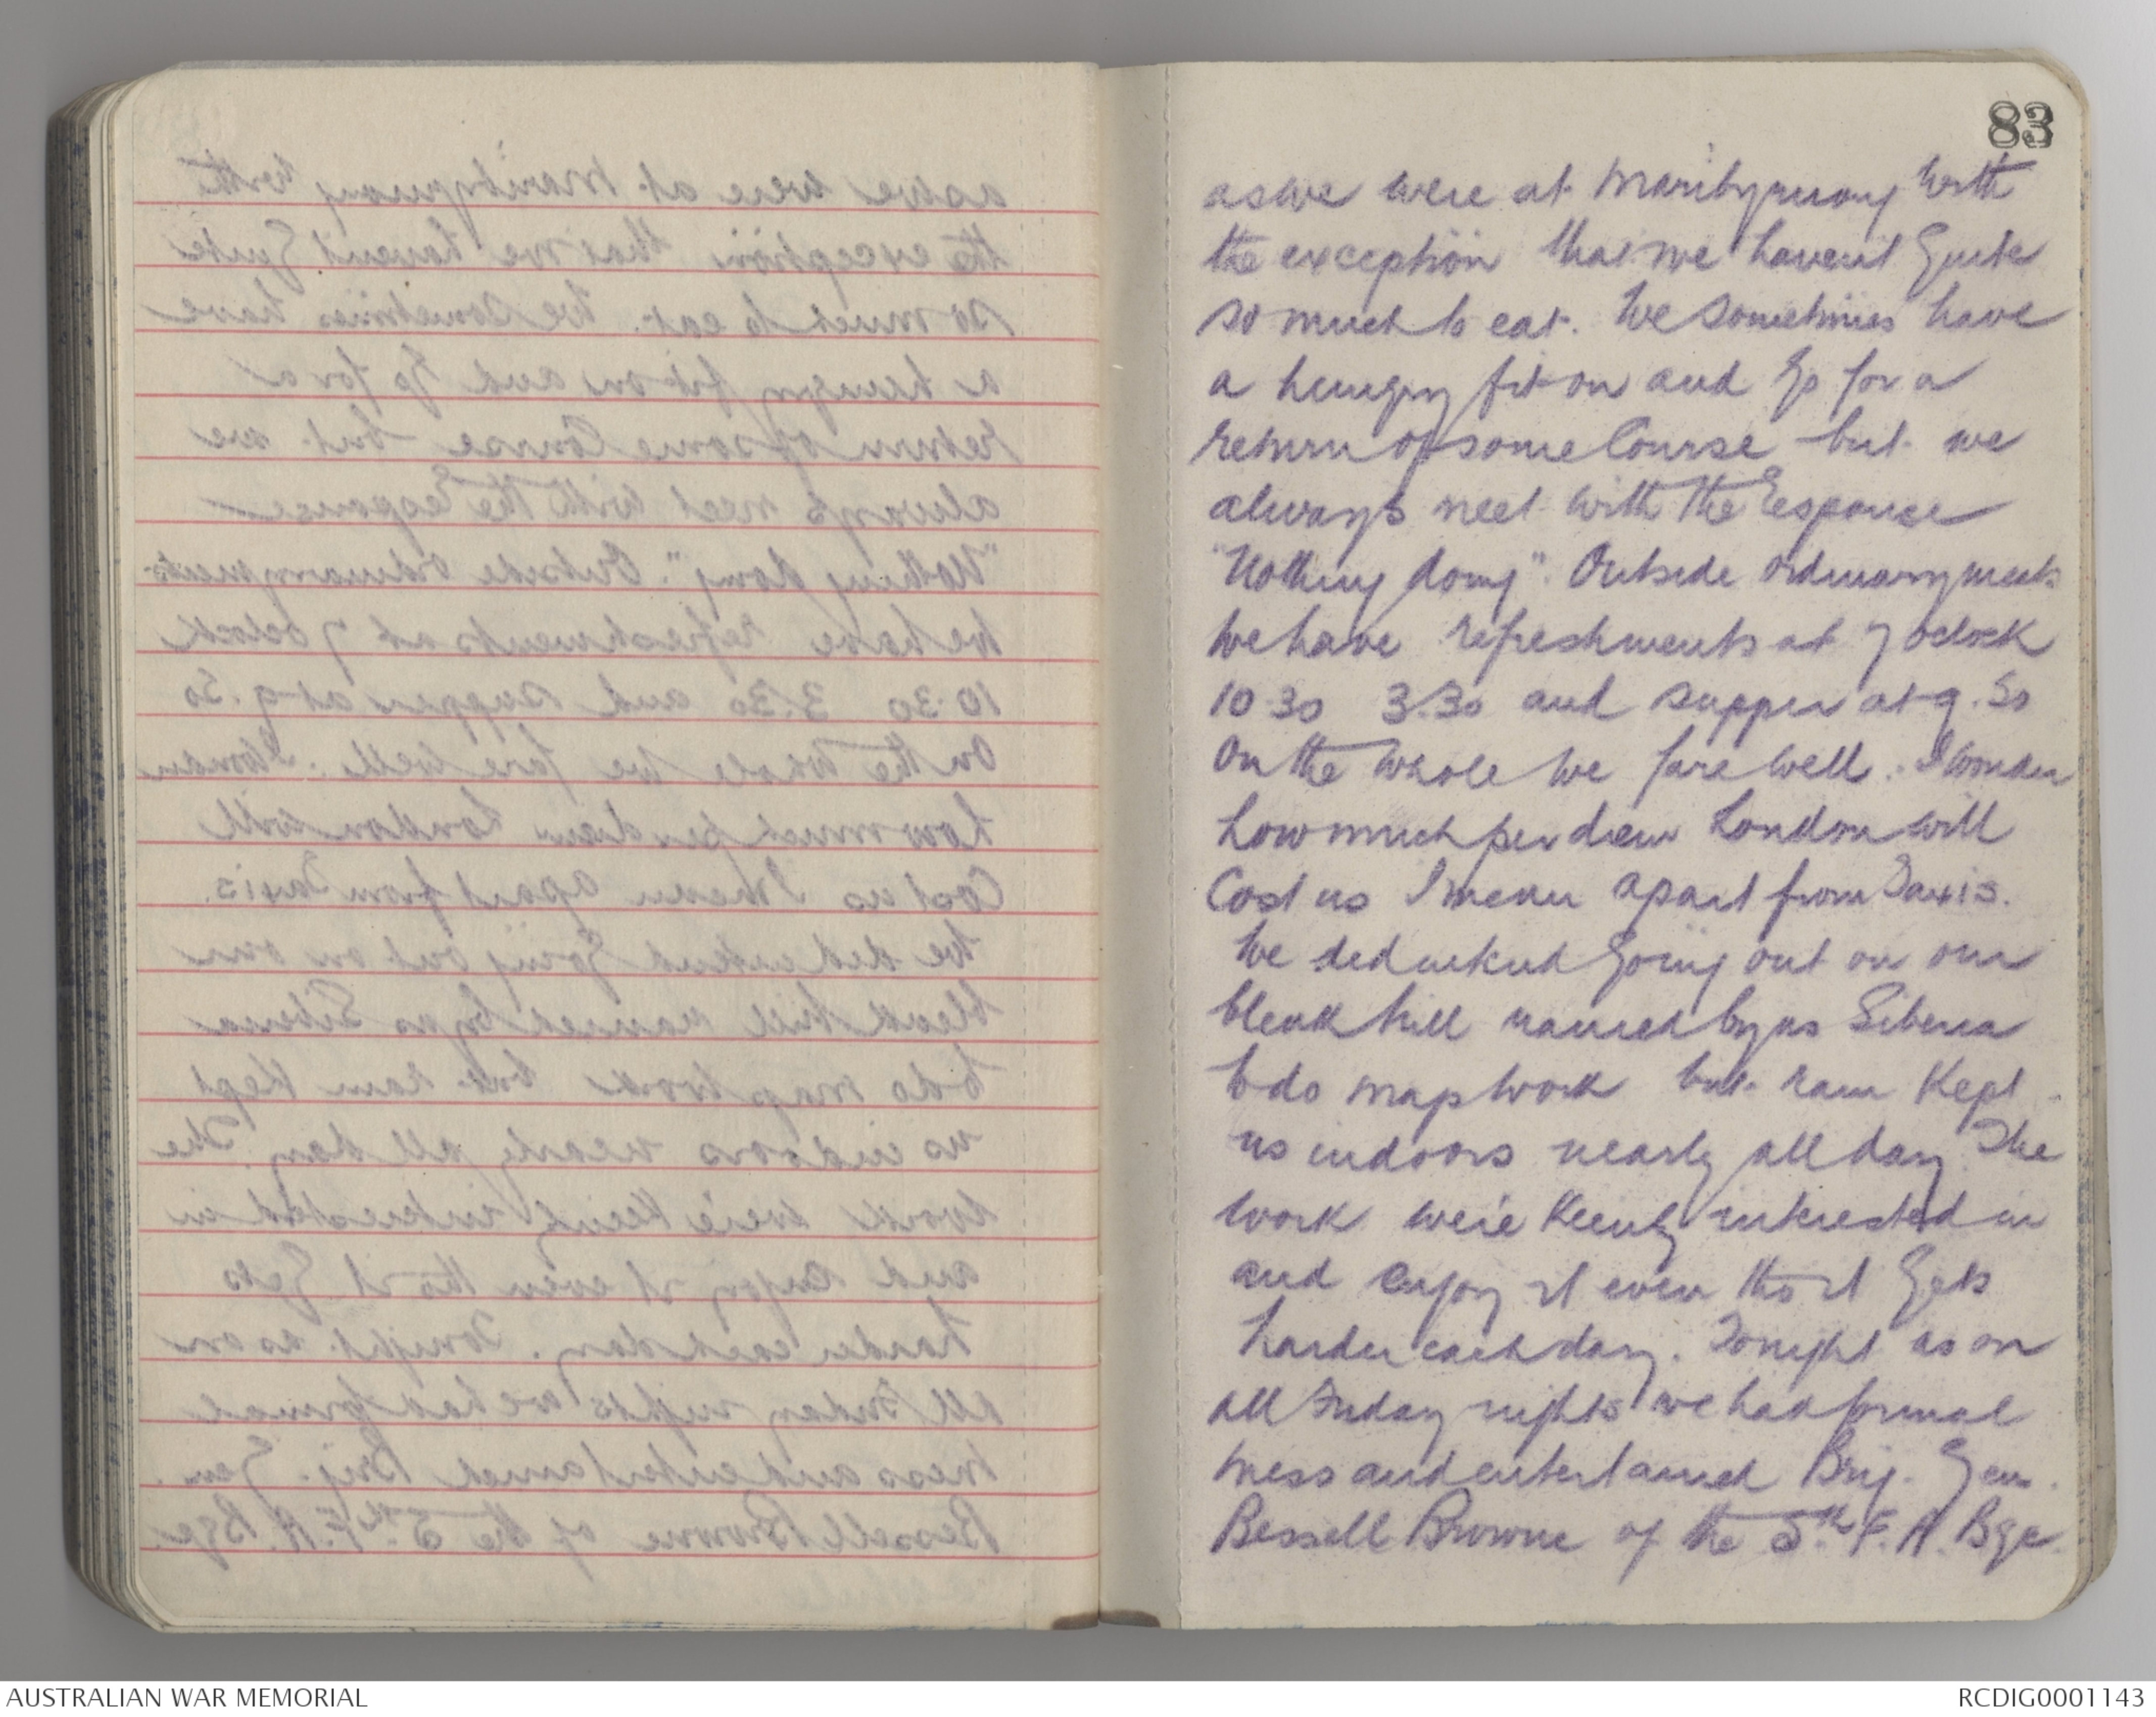 83
as we were at Maribyrnong with
the exception that we havent Quite
so much to eat. We sometimes have
a hungry fit on and Go for a
return of some Course but we
always meet with the Response
"Nothing doing". Outside ordinary meals
we have refreshments at 7 oclock
10.30 3.30 and supper at 9.30
On the whole we fare well. I wonder
how much per diem London will
Cost us I mean apart from Taxis.
We did intend Going out on our
bleak hill named by us Siberia
to do map work but rain Kept
us indoors nearly all day. The
work we're Keenly interested in
and enjoy it even tho it Gets
harder each day. Tonight as on
all Friday nights we had formal
mess and entertained Brig. Gen.
Bessell Browne of the 5th F. A. Bge.
AUSTRALIAN WAR MEMORIAL
RCDIG0001143